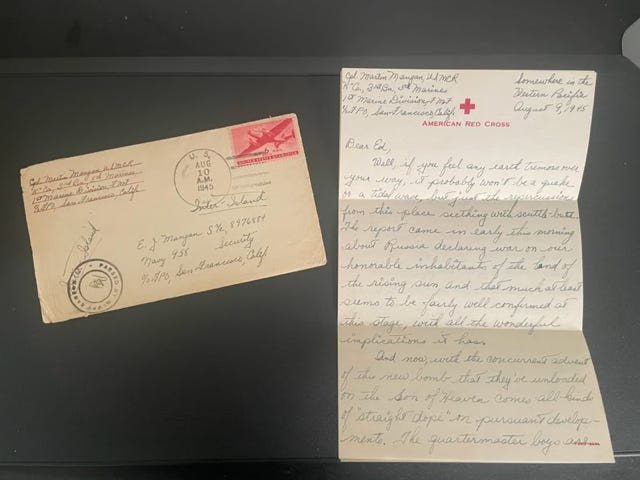 Cpl Martin Mangan, USMCR
"K" Co, 3rd Bn, 5th Marines
1st Marine Division, FMF
c/o FPO, San Francisco, Calif
U. S.
AUG
10
A.M.
1945
UNITED STATES OF AMERICA
Inter-Island
E. J. Mangan S1/c, 8976884
Navy 958 Security
c/o FPO, San Francisco, Calif.
Island
PASSED BY
Cpl Martin Mangan, USMCR
"K" Co, 3rd Bn, 5th Marines
1st Marine Division, FMF
c/o FPO, San Francisco, Calif.
Somewhere in the
Western Pacific
August 9, 1945
AMERICAN RED CROSS
Dear Ed,
Well, if you feel any earth tremors over
your way, it probably won't be a quake
or a tidal wave, but just the repercussions
from this place seething with scuttle-butt.
The report came in early this morning
about Russia declaring war on our
honorable inhabitants of the land of
the rising sun, and that much at least
seems to be fairly well confirmed at
this stage, with all the wonderful
implications it has.
And now, with the concurrent advent
of this new bomb that they've unloaded
on the Son of Heaven comes all kinds
of "straight dope" on pursuant develop-
ments. The quartermaster boys